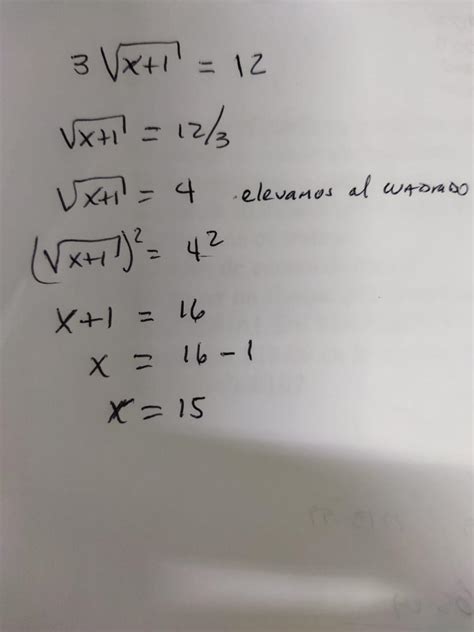 3√(x+1) = 12
√(x+1) = 12/3
√(x+1) = 4 elevamos al cuadrado
(√(x+1))² = 4²
x+1 = 16
x = 16-1
x = 15